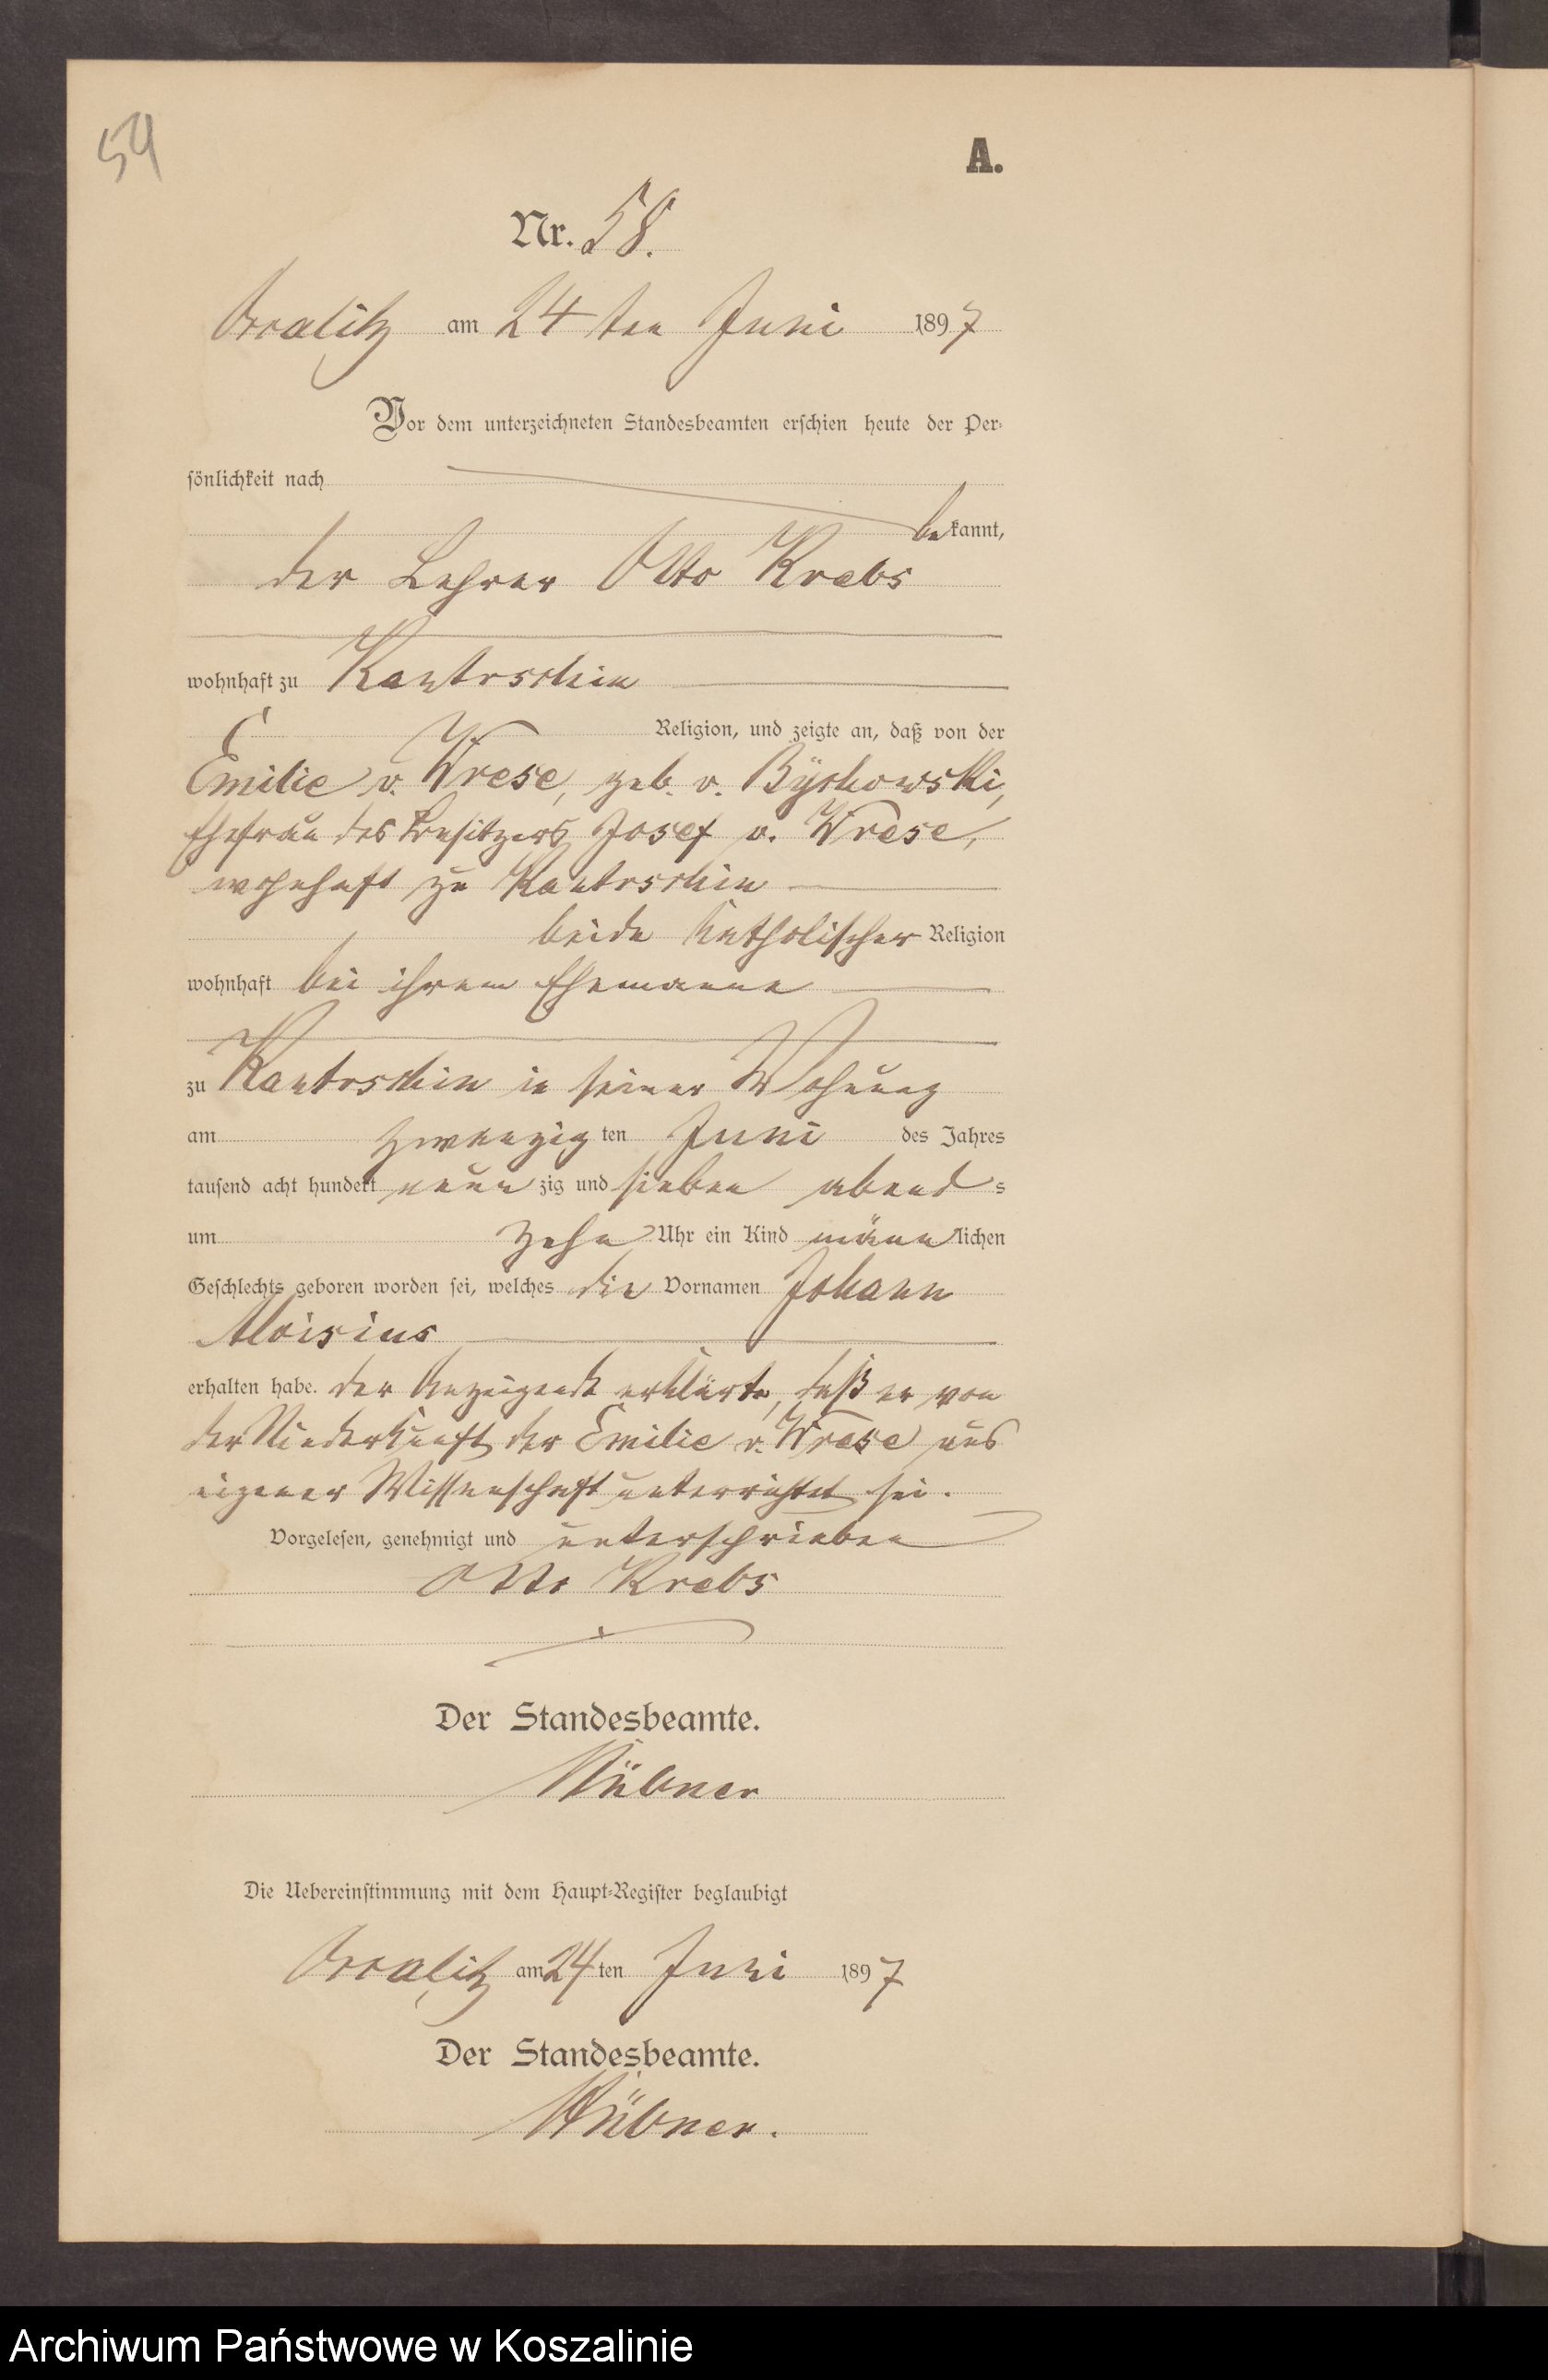 54
A.
Nr. 58.
am 24 ten Juni 1897
Vor dem unterzeichneten Standesbeamten erschien heute der Per-
sönlichkeit nach
bekannt,
der Lehrer Otto Krebs
wohnhaft zu Kantrschin
Religion, und zeigte an, daß von der
Emilie v. Wrese, geb. v. Byschowski,
Ehefrau des Besitzers Josef v. Wrese,
wohnhaft zu Kantrschin
beide katholischer Religion
wohnhaft bei ihrem Ehemanne
zu Kantrschin in seiner Wohnung
am zwanzig ten Juni des Jahres
tausend acht hundert neun zig und sieben abend s
um zehn Uhr ein Kind männlichen
Geschlechts geboren worden sei, welches die Vornamen Johann
Aloisius
erhalten habe. Der Anzeigende erklärte, daß er von
der Niederkunft der Emilie v. Wrese aus
eigener Wissenschaft unterrichtet sei.
Vorgelesen, genehmigt und unterschrieben
Otto Krebs
Der Standesbeamte.
Hübner
Die Uebereinstimmung mit dem Haupt-Register beglaubigt
am 24 ten Juni 1897
Der Standesbeamte.
Hübner.
Archiwum Państwowe w Koszalinie